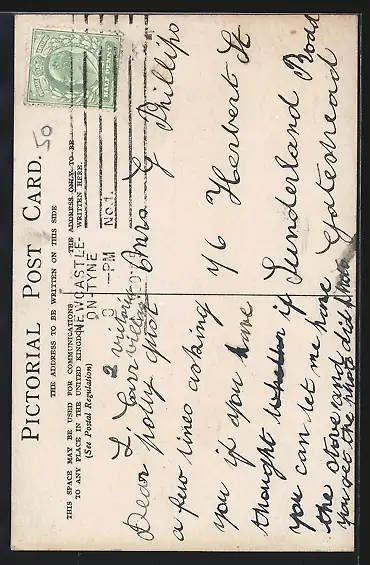 PICTORIAL POST CARD.
THE ADDRESS TO BE WRITTEN ON THIS SIDE
THIS SPACE MAY BE USED FOR COMMUNICATIONS
TO ANY PLACE IN THE UNITED KINGDOM
(See Postal Regulation)
THE ADDRESS ONLY TO BE
WRITTEN HERE.
HALF PENNY
50
NEWCASTLE-
ON-TYNE
PM
No.1.
2
Dear polly just
a few lines asking
you if you have
thought if
you can let me have
the stove and
you get the
Mrs G Phillips
Y6 Herbert St
Sunderland Road
Gateshead